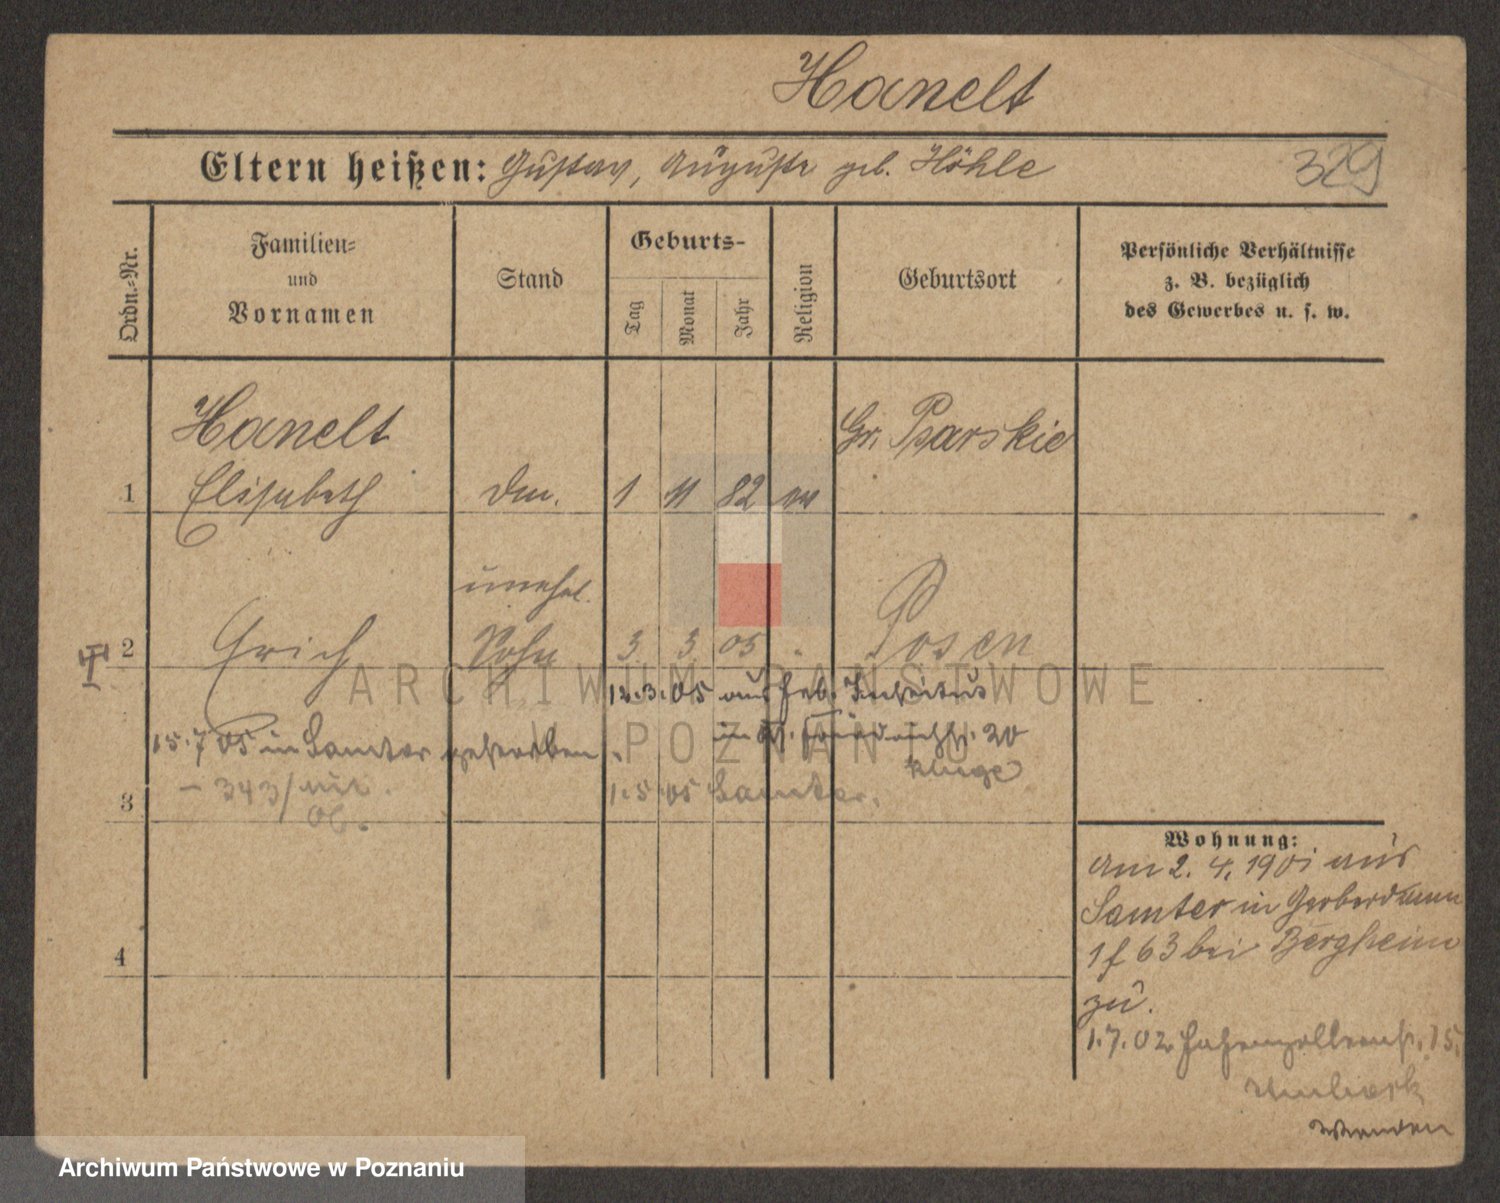 Hanelt
Eltern heißen: Gustav, Auguste geb. Höhle
329
Ordn.-Nr.
Familien-
und
Vornamen
Stand
Geburts-
Tag
Monat
Jahr
Religion
Geburtsort
Persönliche Verhältnisse
z. B. bezüglich
des Gewerbes u. s. w.
Hanelt
Gr. Psarskie
1 Elisabeth 1 11 82 ev
unehel.
2 Erich Sohn 3 3 05 Posen
12.3.05 aus Heb. Institut
15.7 05 in Samter gestorben.
20
Kluge
- 343/
06.
1.5 05 Samter.
3
Wohnung:
Am 2. 4. 1901 aus
Samter in Gerberdamm
1 f 63 bei Bergheim
zu.
1.7.02 Hohenzollernstr. 15.
Wenden
4
ARCHIWUM PAŃSTWOWE
W POZNANIU
Archiwum Państwowe w Poznaniu